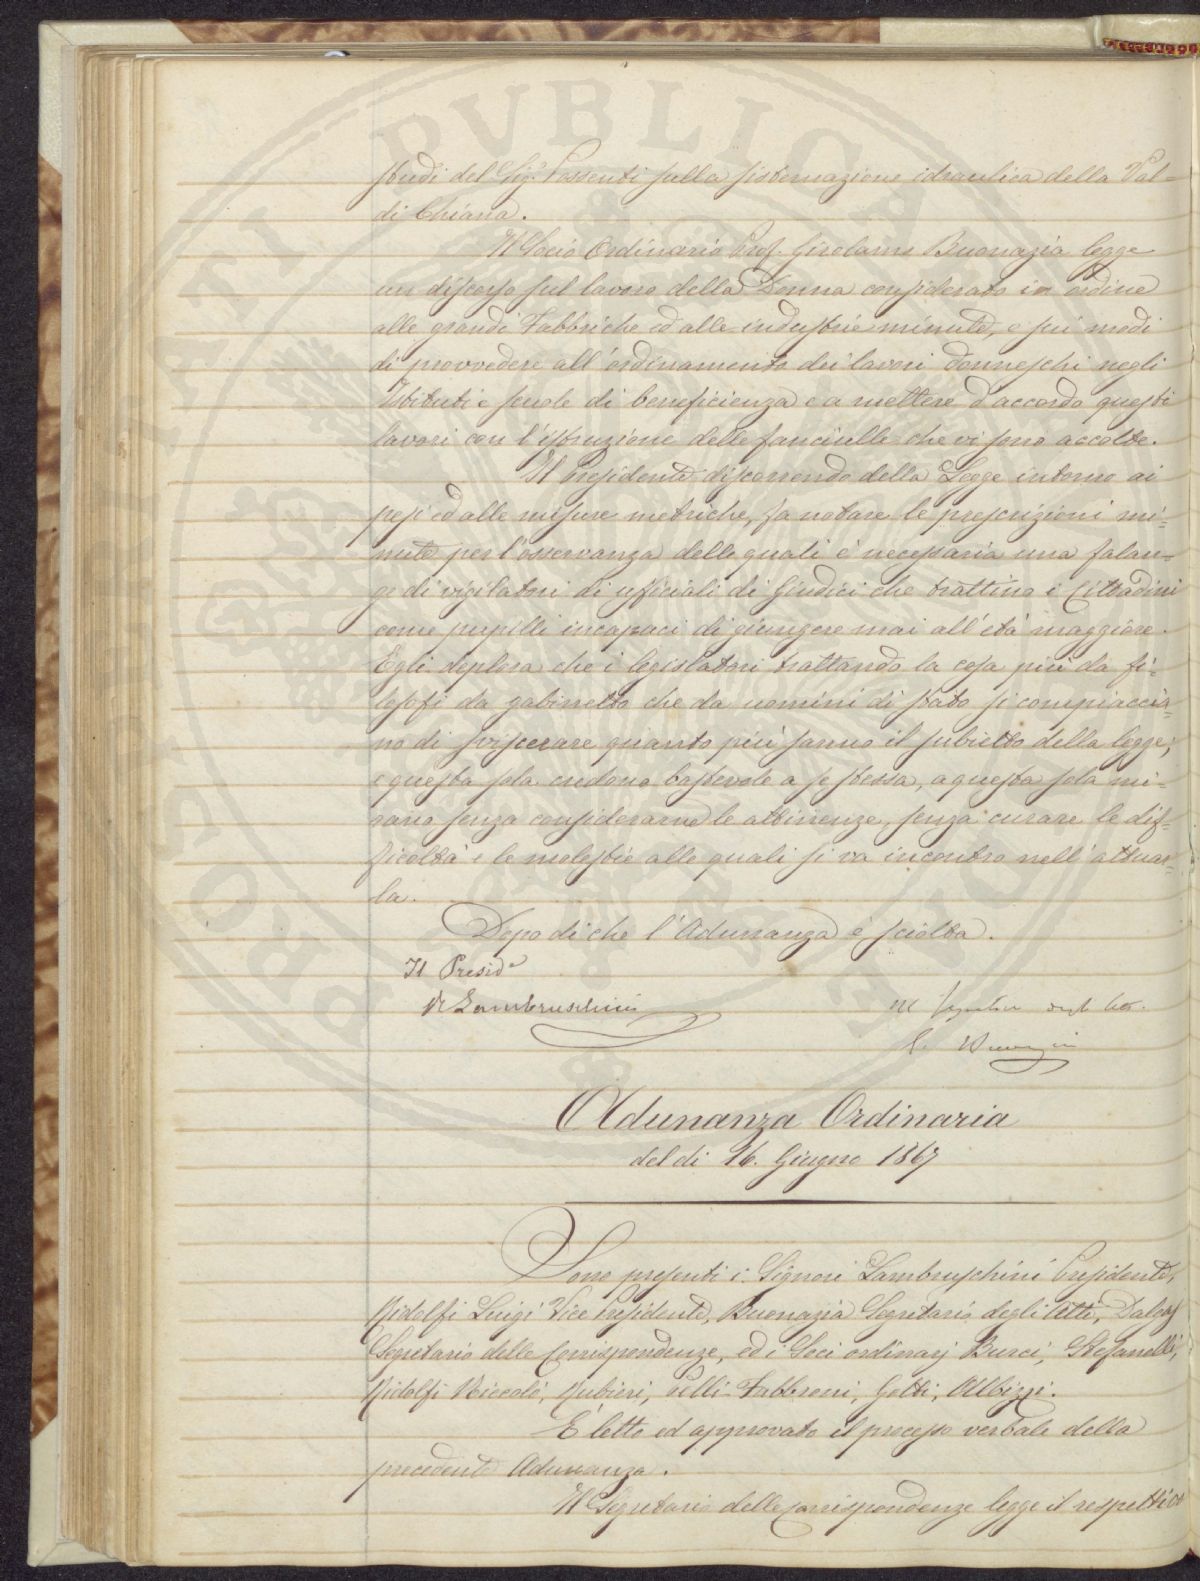 studi del Sig. Possenti sulla sistemazione idraulica della Val
di Chiana.
Il Socio Ordinario Prof. Girolamo Buonazia legge
un discorso sul lavoro della Donna considerato in ordine
alle grandi Fabbriche ed alle industrie minute, e sui modi
di provvedere all'ordinamento dei lavori donneschi negli
Istituti e scuole di beneficienza e a mettere d'accordo questi
lavori con l'istruzione delle fanciulle che vi sono accolte.
Il Presidente discorrendo della Legge intorno ai
pesi ed alle misure metriche, fa notare le prescrizioni mi=
nute per l'osservanza delle quali è necessaria una falan=
ge di vigilatori di ufficiali di Giudici che trattino i Cittadini
come pupilli incapaci di giungere mai all'età maggiore.
Egli deplora che i legislatori trattando la cosa più da fi=
losofi da gabinetto che da uomini di stato si compiaccia=
no di sviscerare quanto più sanno il subietto della legge;
e questa sola credono bastevole a se stessa, a questa sola mi=
rano senza considerarne le attinenze, senza curare le dif=
ficoltà e le molestie alle quali si va incontro nell'attuar=
la.
Dopo di che l'Adunanza è sciolta.
Il Presid.e
R Lambruschini
Il Segretario degli Atti.
G. Buonazia
Adunanza Ordinaria
del dì 16. Giugno 1867
Sono presenti i Signori Lambruschini Presidente,
Ridolfi Luigi Vice Presidente, Buonazia Segretario degli Atti,
Segretario delle Corrispondenze, ed i Soci ordinarj Burci, Stefanelli,
Ridolfi Niccolò, Rubieri, Pelli-Fabbroni, Gotti, Albizzi.
È letto ed approvato il processo verbale della
precedente Adunanza.
Il Segretario delle Corrispondenze legge il respettivo
PROSPERITATI PVBLICAE